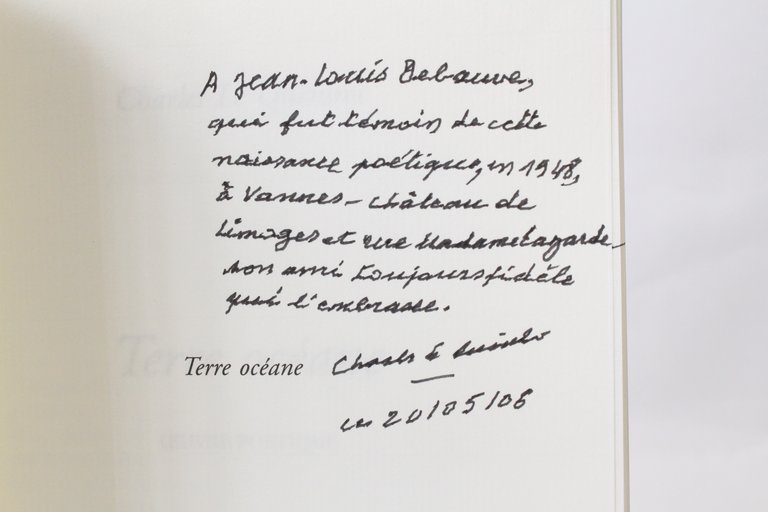 A Jean-Louis Debauve,
qui fut témoin de cette
naissance poétique, en 1948,
à Vannes - château de
Limoges et rue Madame Lagarde
son ami toujours fidèle
qui l'embrasse.
Terre océane Charles Le Quintrec
20/05/06